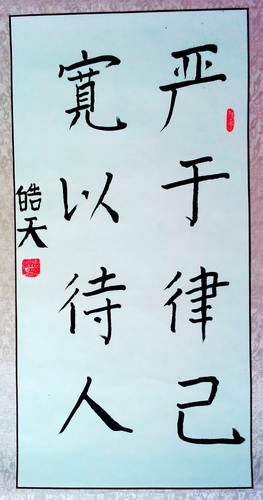 严于律己
寬以待人
皓天